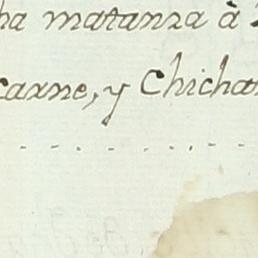 ha matanza à
carne, y Chicha